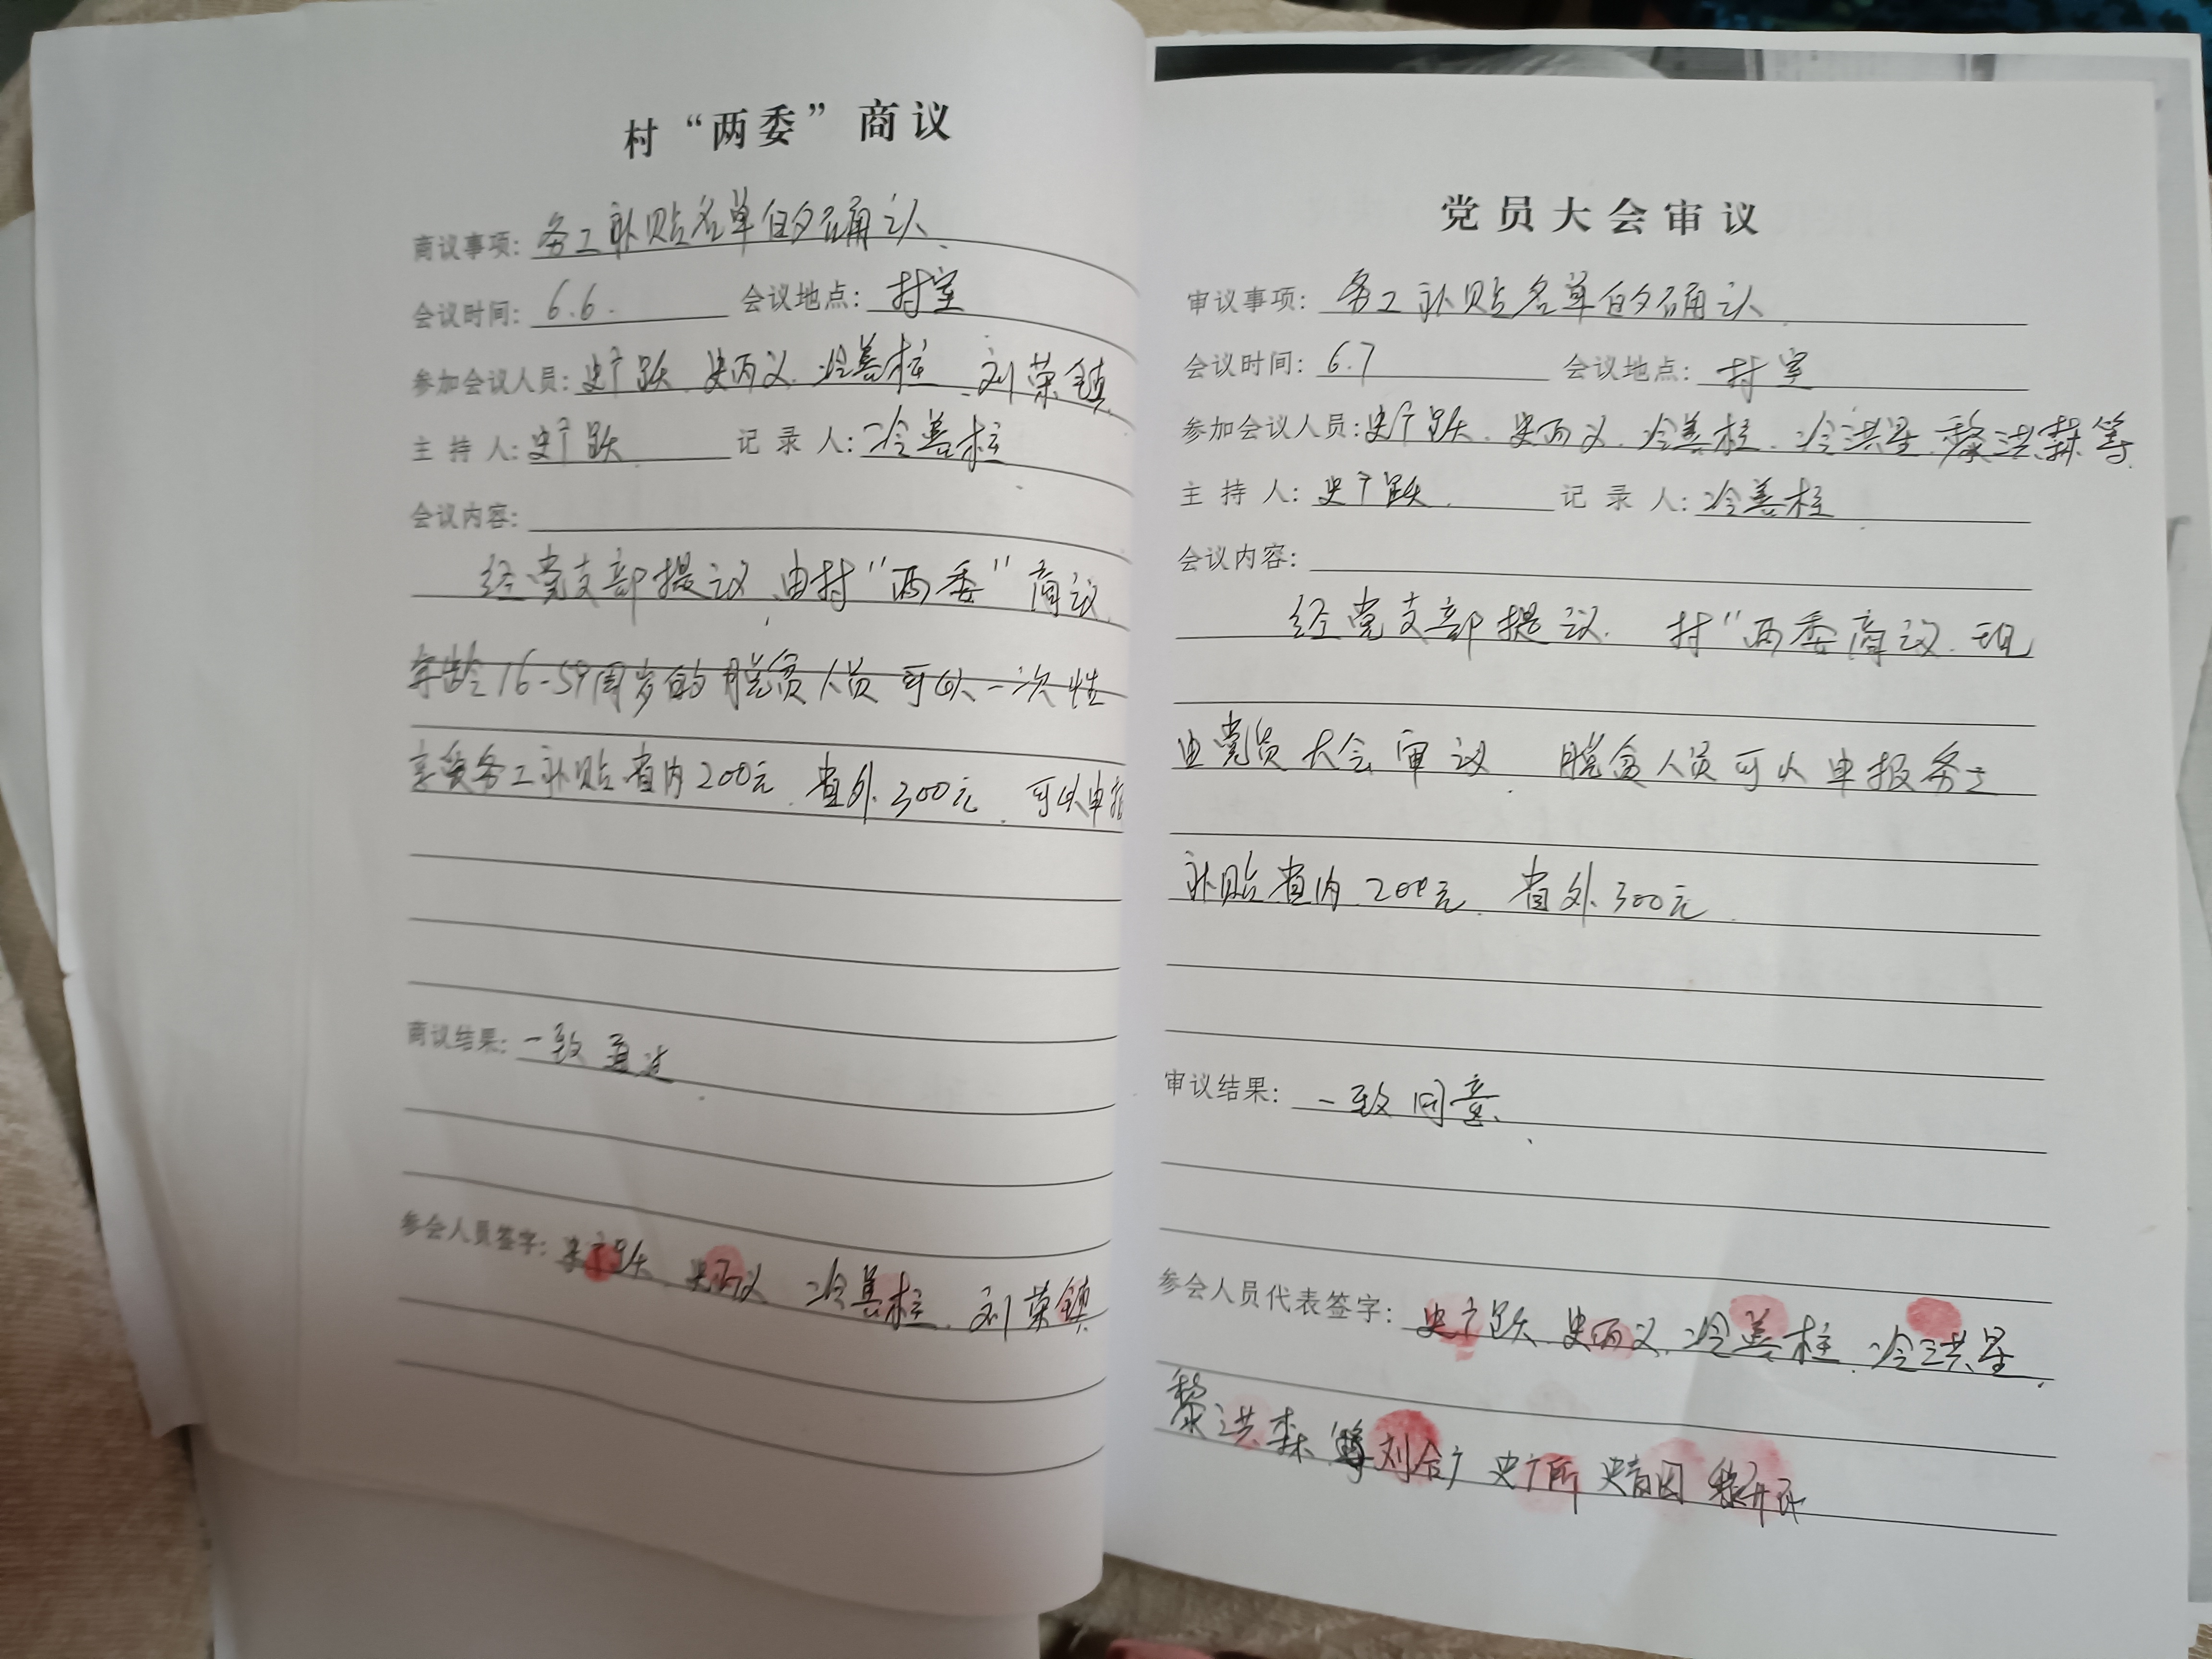 村“两委”商议
商议事项: 务工补贴名单的确认.
会议时间: 6.6. 会议地点: 村室
参加会议人员: 史广跃、史丙义、冷善柱、刘荣镇.
主持人: 史广跃. 记录人: 冷善柱
会议内容:
经党支部提议、由村“两委”商议.
年龄16-59周岁的脱贫人员可以一次性
享受务工补贴省内200元、省外300元. 可以申报
商议结果: 一致通过
参会人员签字: 史广跃、史丙义 冷善柱、刘荣镇
党员大会审议
审议事项: 务工补贴名单的确认.
会议时间: 6.7 会议地点: 村室
参加会议人员: 史广跃、史丙义、冷善柱、冷洪星、黎洪霖等.
主持人: 史广跃. 记录人: 冷善柱
会议内容:
经党支部提议、村“两委商议、现
由党员大会审议. 脱贫人员可以申报务工
补贴省内200元、省外300元.
审议结果: 一致同意.
参会人员代表签字: 史广跃、史丙义、冷善柱、冷洪星.
黎洪森 刘合广 史广所